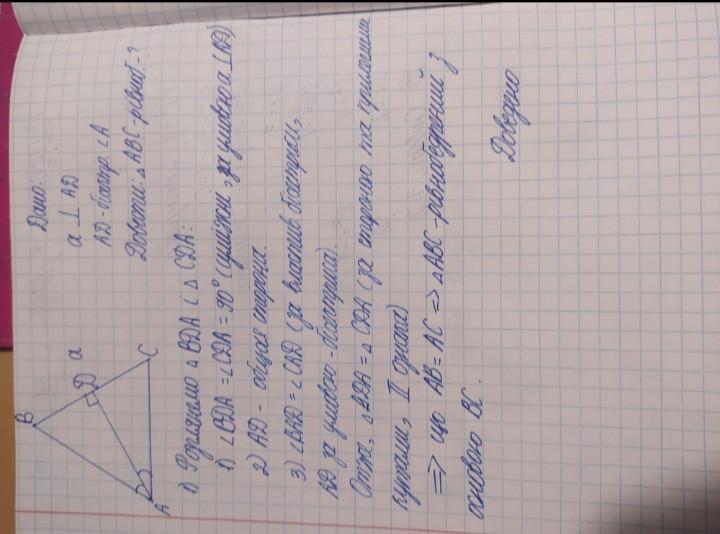 B
D
a
A
C
Дано:
a ⊥ AD
AD - бісектр. ∠A
Довести: △ABC - рівноб - ?
1) Розглянемо △ BDA і △ CDA:
1) ∠BDA = ∠CDA = 90° (суміжні, за умовою a ⊥ AD)
2) AD - общая сторона.
3) ∠BAD = ∠CAD (за властив. бісектриси,
AD за умовою - бісектриса).
Отже, △BDA = △ CDA (за стороною та прилеглими
кутами, II ознака)
=> що AB = AC => △ABC - рівнобедрений з
основою BC.
Доведено